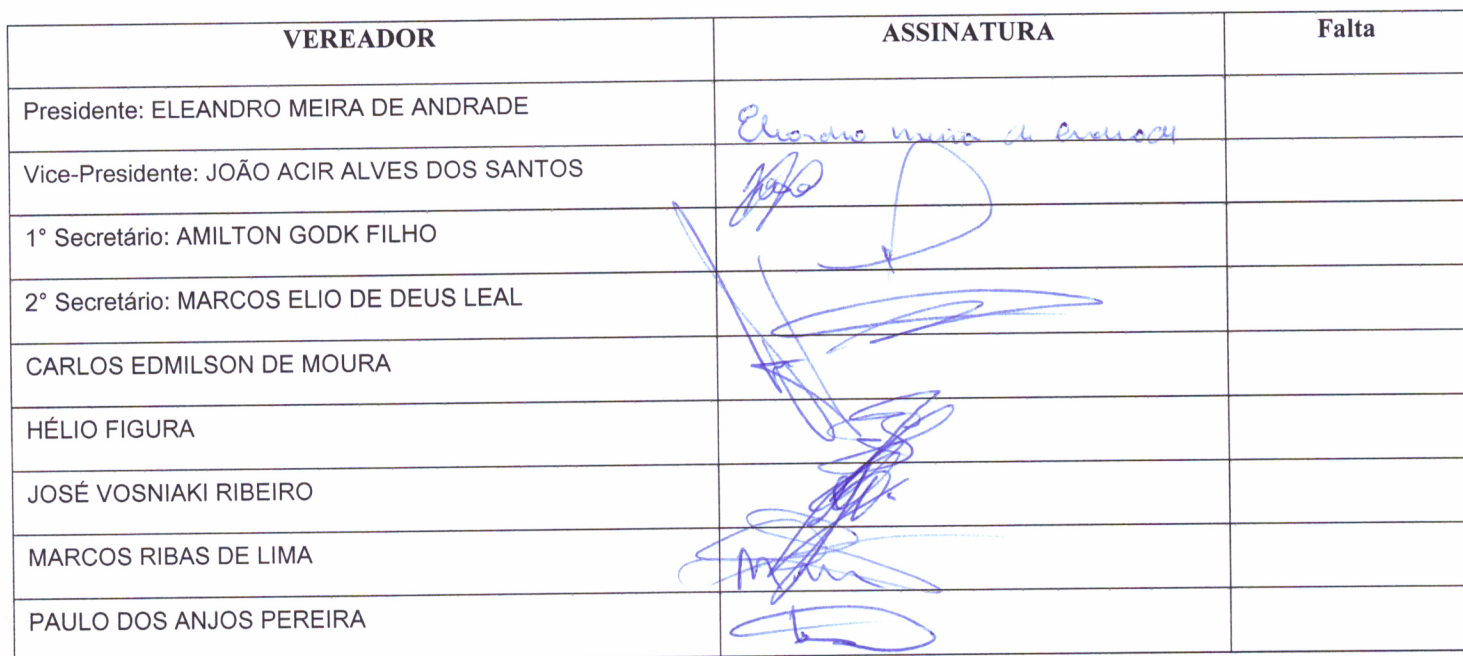 VEREADOR ASSINATURA Falta
Presidente: ELEANDRO MEIRA DE ANDRADE Eleandro Meira de Andrade
Vice-Presidente: JOÃO ACIR ALVES DOS SANTOS
1° Secretário: AMILTON GODK FILHO
2° Secretário: MARCOS ELIO DE DEUS LEAL
CARLOS EDMILSON DE MOURA
HÉLIO FIGURA
JOSÉ VOSNIAKI RIBEIRO
MARCOS RIBAS DE LIMA
PAULO DOS ANJOS PEREIRA